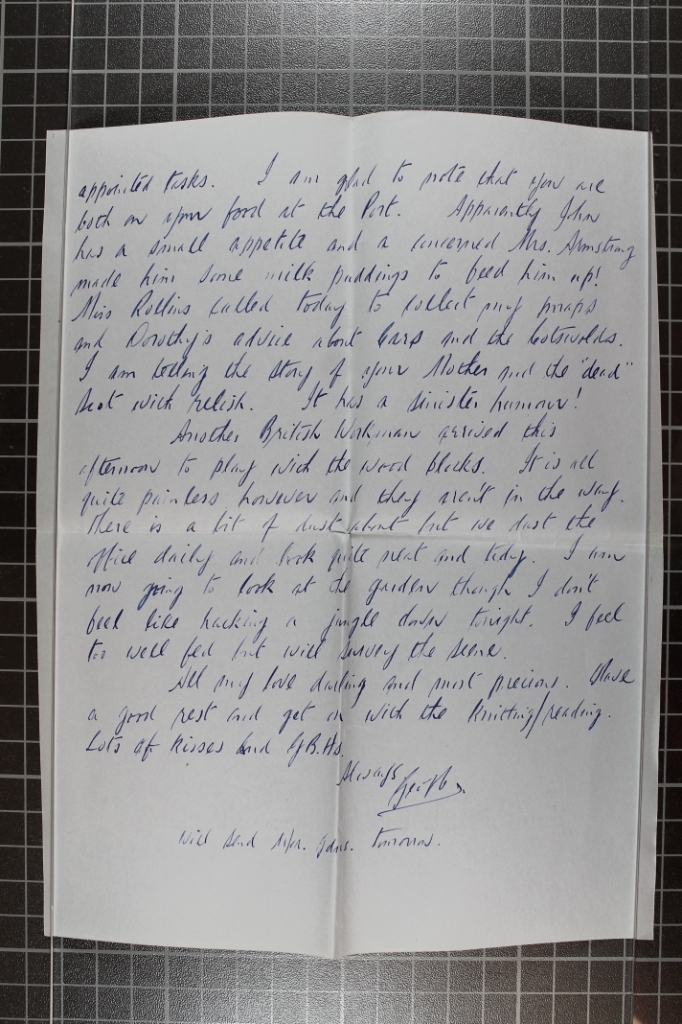 appointed tasks. I am glad to note that you are
both on your food at the Port. Apparently John
has a small appetite and a concerned Mrs. Armstrong
made him some milk puddings to feed him up!
Miss Rollins called today to collect my
and Dorothy's advice about Cars and the Cotswolds.
I am telling the story of your Mother and the "dead"
with relish. It has a sinister humour!
Another British Workman arrived this
afternoon to play with the wood blocks. It is all
quite painless however and they aren't in the way.
There is a bit of dust about but we dust the
office daily and look quite neat and tidy. I am
now going to look at the garden though I don't
feel like hacking a jungle down tonight. I feel
too well fed but will survey the scene.
All my love darling and most precious. Have
a good rest and get on with the knitting/reading.
Lots of kisses and G.B.Hs.
Always
Will send tomorrow.